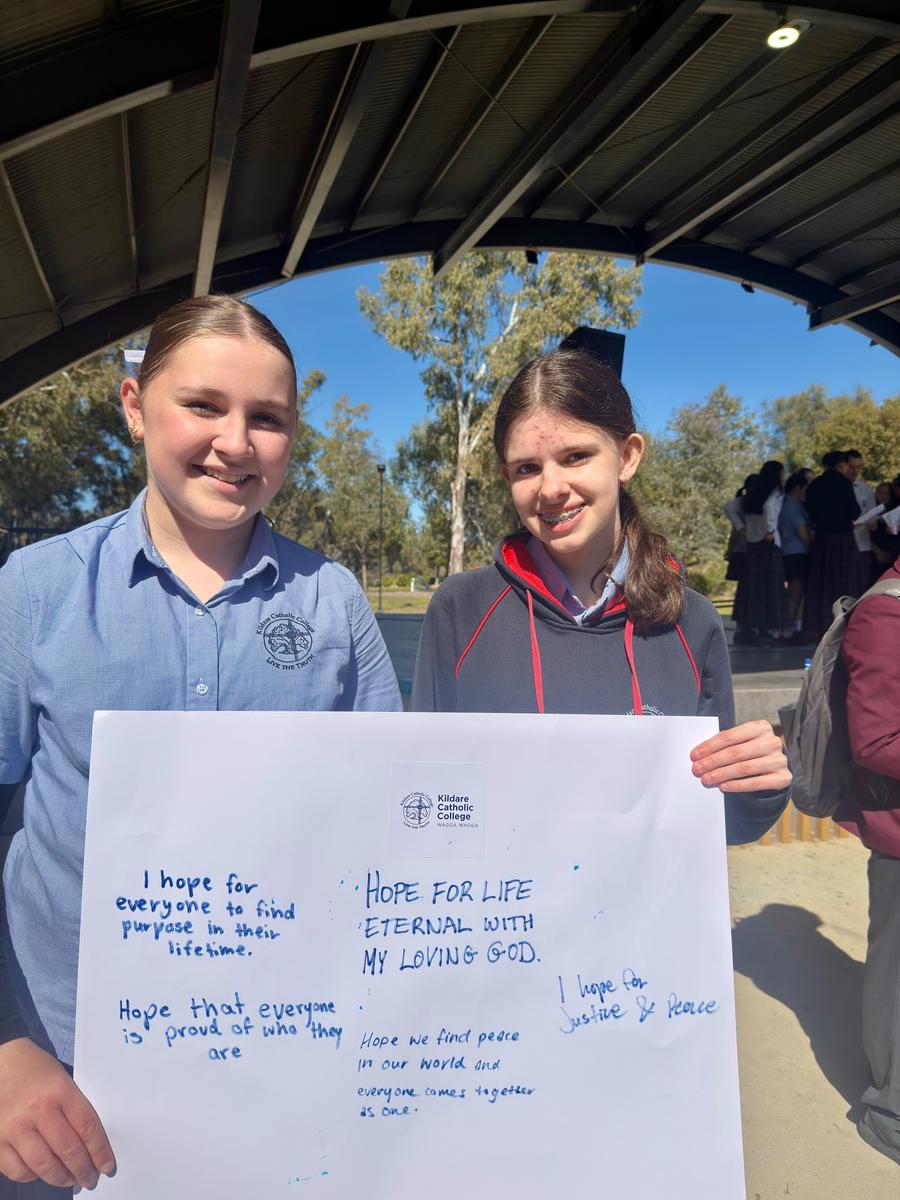 Kildare Catholic College
LIVE THE TRUTH
Kildare
Catholic
College
WAGGA WAGGA
I hope for
everyone to find
purpose in their
lifetime.
Hope that everyone
is proud of who they
are
HOPE FOR LIFE
ETERNAL WITH
MY LOVING GOD.
Hope we find peace
in our world and
everyone comes together
as one.
I hope for
Justice & Peace